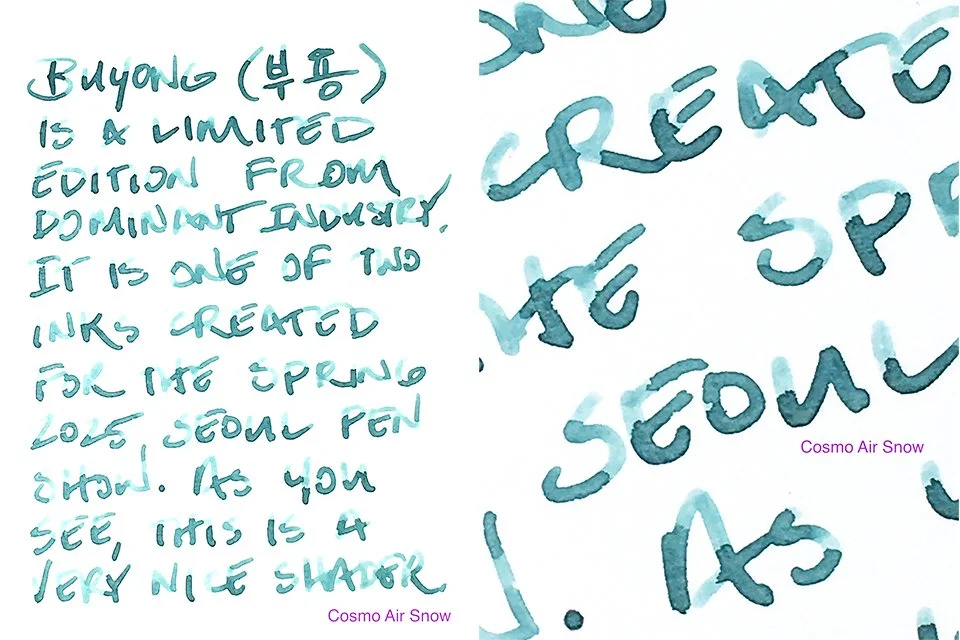 Buyong (부용)
IS A LIMITED
EDITION FROM
DOMINANT INDUSTRY.
IT IS ONE OF TWO
INKS CREATED
FOR THE SPRING
2025, SEOUL PEN
SHOW. AS YOU
SEE, THIS IS A
VERY NICE SHADER
Cosmo Air Snow
CREATE
HE SPR
SEOUL
Cosmo Air Snow
. AS